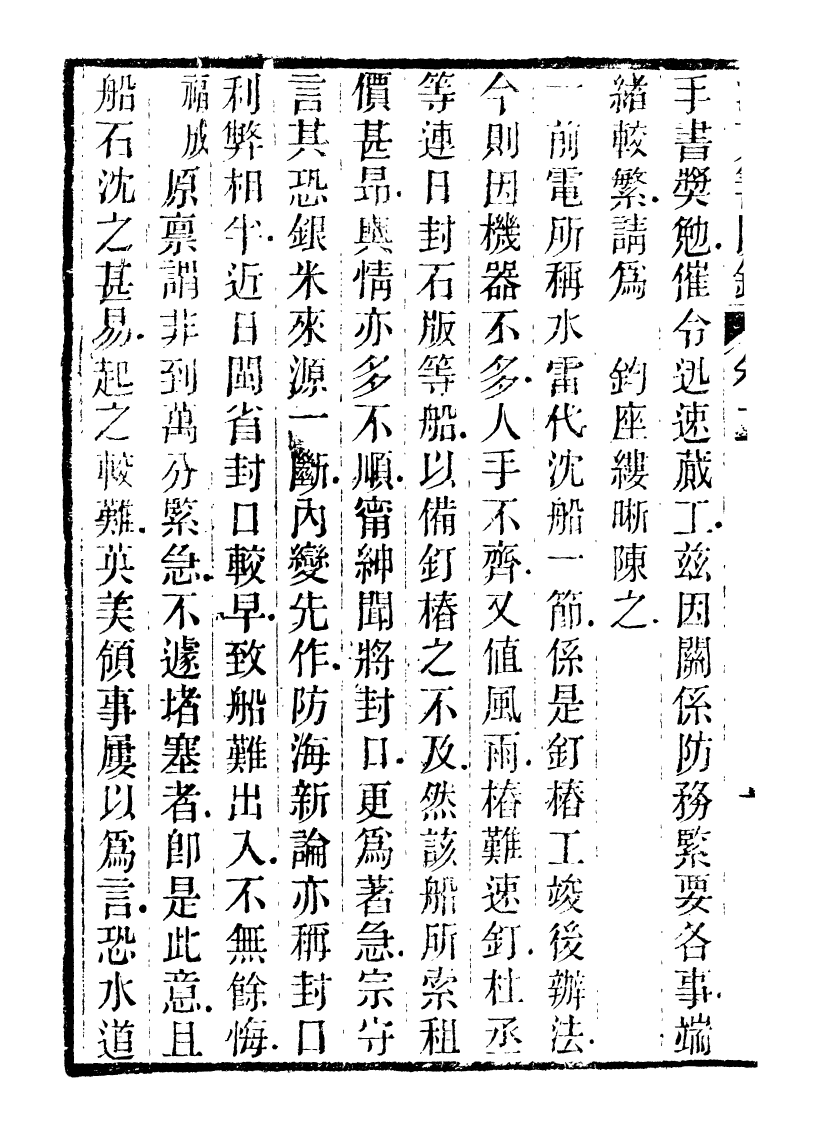 手書獎勉.催令迅速蕆工.茲因關係防務緊要各事.端
緒較繁.請爲　鈞座縷晰陳之.
一前電所稱水雷代沈船一節.係是釘樁工竣後辦法.
今則因機器不多.人手不齊.又値風雨.樁難速釘.杜丞
等連日封石版等船.以備釘樁之不及.然該船所索租
價甚昂.輿情亦多不順.甯紳聞將封口.更爲著急.宗守
言其恐銀米來源一斷.內變先作.防海新論亦稱封口
利弊相半.近日閩省封口較早.致船難出入.不無餘悔.
福成原稟謂非到萬分緊急.不遽堵塞者.卽是此意.且
船石沈之甚易.起之較難.英美領事屢以爲言.恐水道